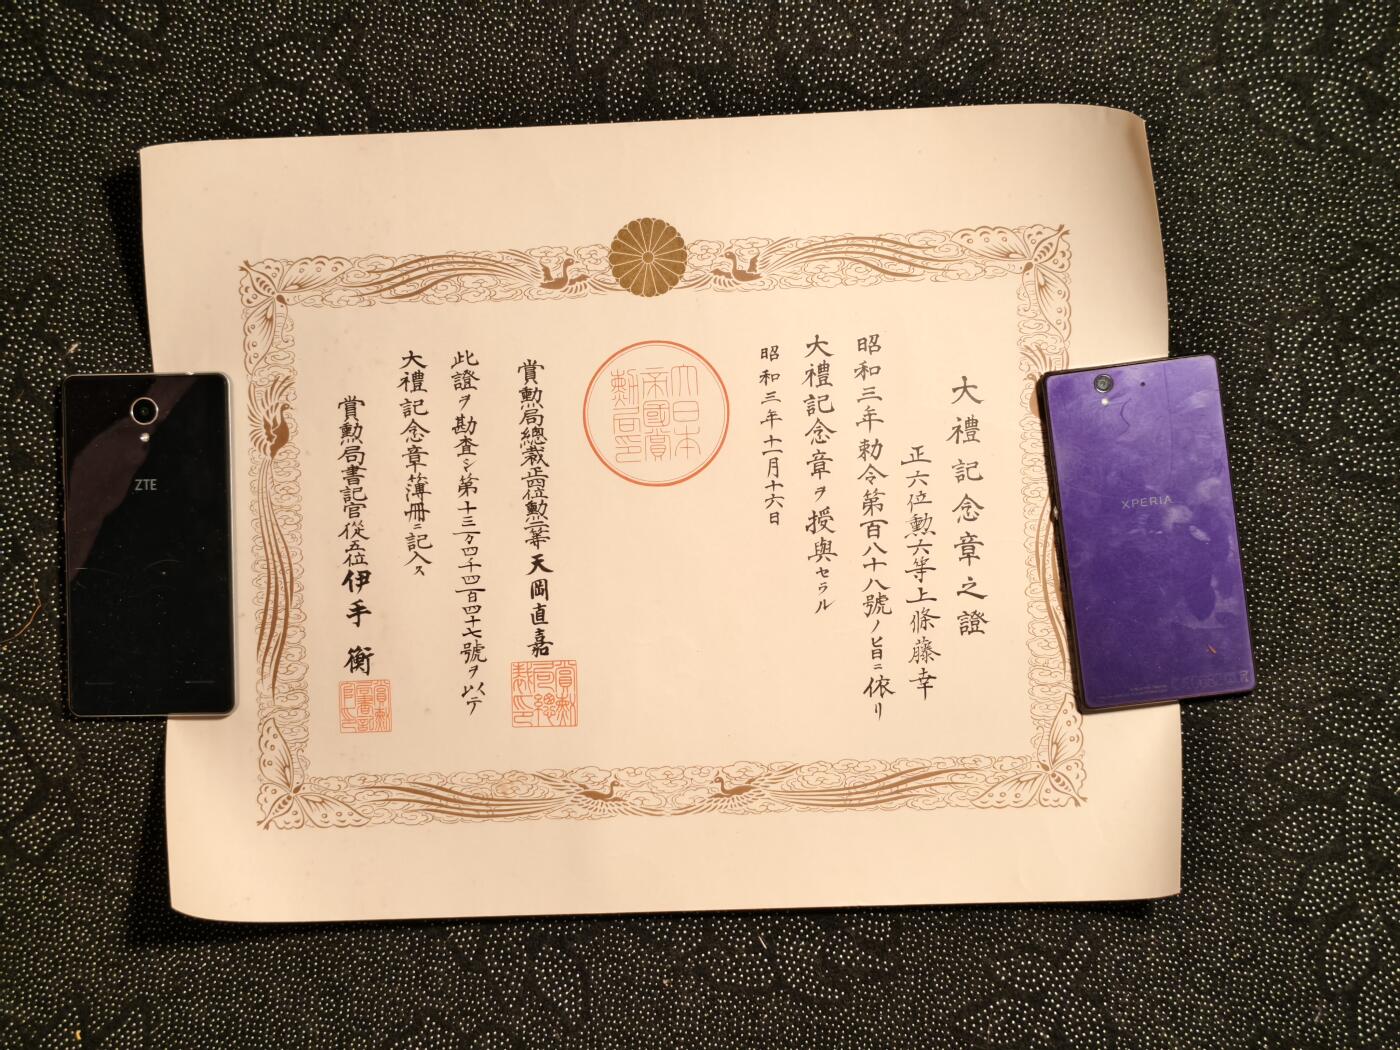 大禮記念章之證
正六位勲六等上條藤幸
昭和三年勅令第百八十八號ノ旨ニ依リ
大禮記念章ヲ授與セラル
昭和三年十一月十六日
大日本
帝國賞
勲局印
賞勲局總裁正四位勲二等天岡直嘉
賞勲
局總
裁印
此證ヲ勘査シ第十三万四千四百四十七號ヲ以テ
大禮記念章簿冊ニ記入ス
賞勲局書記官從五位伊手衡
賞勲
局書記
官印
ZTE
XPERIA